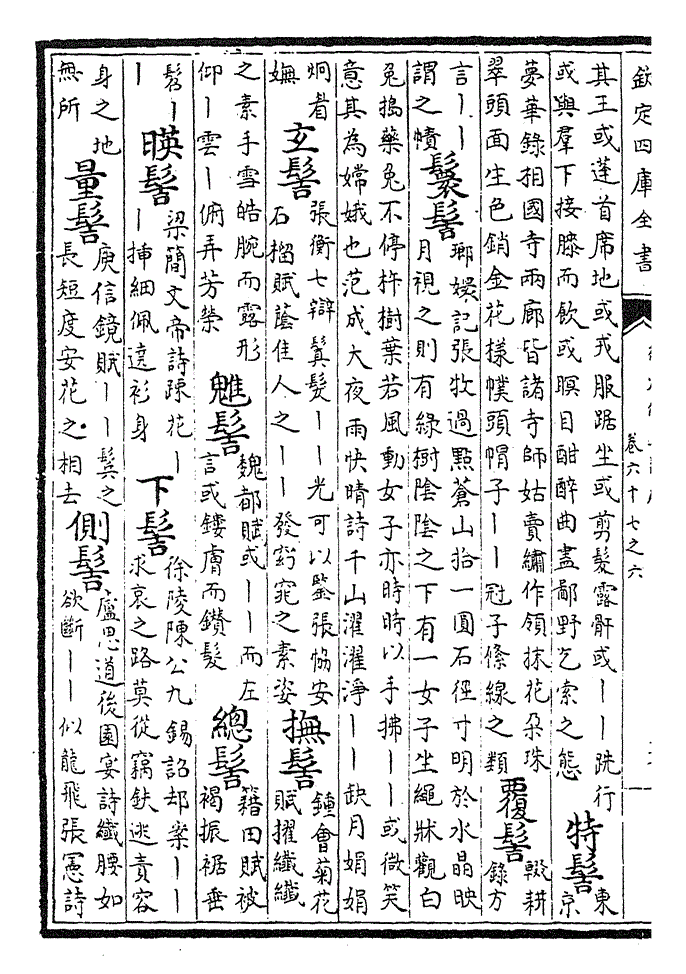 欽定四庫全書
卷六十七之六
其王或蓬首席地或戎服踞坐或剪髮露骭或丨丨跣行
或與羣下接膝而飲或瞑目酣醉曲盡鄙野乞索之態
特髻
東
京
夢華錄相國寺兩廊皆諸寺師姑賣繡作領抹花朵珠
翠頭面生色銷金花樣幞頭帽子丨丨冠子絛線之類
覆髻
輟耕
錄方
言丨丨
謂之幘
鬟髻
瑯嬛記張牧過點蒼山拾一圓石徑寸明於水晶映
月視之則有綠樹陰陰之下有一女子坐繩牀觀白
兔搗藥兔不停杵樹葉若風動女子亦時時以手拂丨丨或微笑
意其為嫦娥也范成大夜雨快晴詩千山濯濯淨丨丨缺月娟娟
炯看
嫵
玄髻
張衡七辯鬒髮丨丨光可以鑒張協安
石榴賦蔭佳人之丨丨發窈窕之素姿
撫髻
鍾會菊花
賦擢纖纖
之素手雪皓腕而露形
仰雲丨俯弄芳榮
魋髻
魏都賦或丨丨而左
言或鏤膚而鑽髮
總髻
籍田賦被
褐振裾垂
髫丨
丨
暎髻
梁簡文帝詩踈花丨
丨揷細佩遶衫身
下髻
徐陵陳公九錫詔却案丨丨
求哀之路莫從竊鈇逃責容
身之地
無所
量髻
庾信鏡賦丨丨鬟之
長短度安花之相去
側髻
盧思道後園宴詩纖腰如
欲斷丨丨似龍飛張憲詩